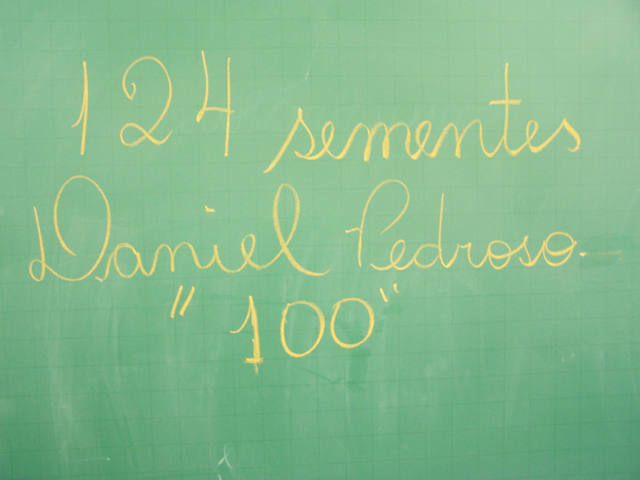 124 sementes
Daniel Pedroso.
"100"